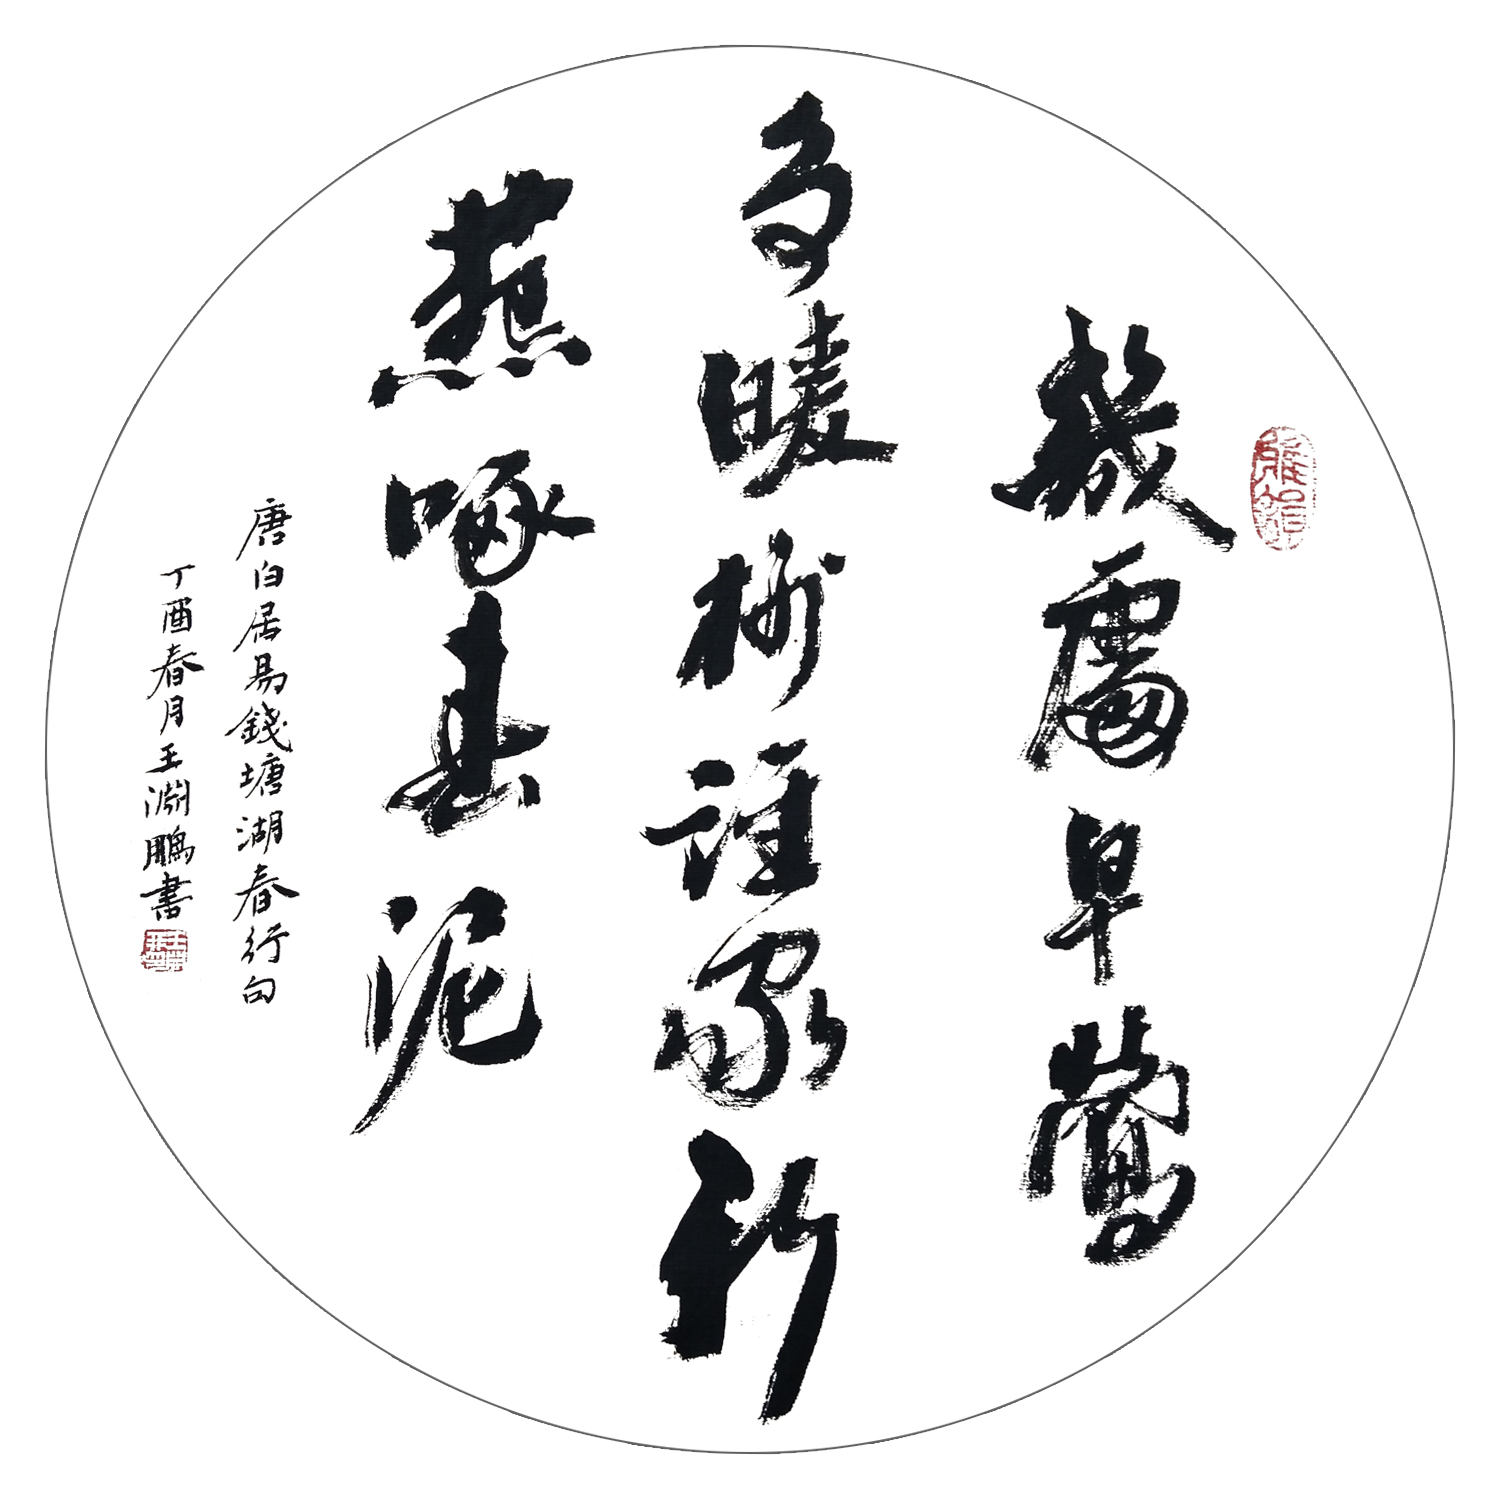 幾處早鶯
爭暖樹誰家新
燕啄春泥
唐白居易錢塘湖春行句
丁酉春月王淵鵬書